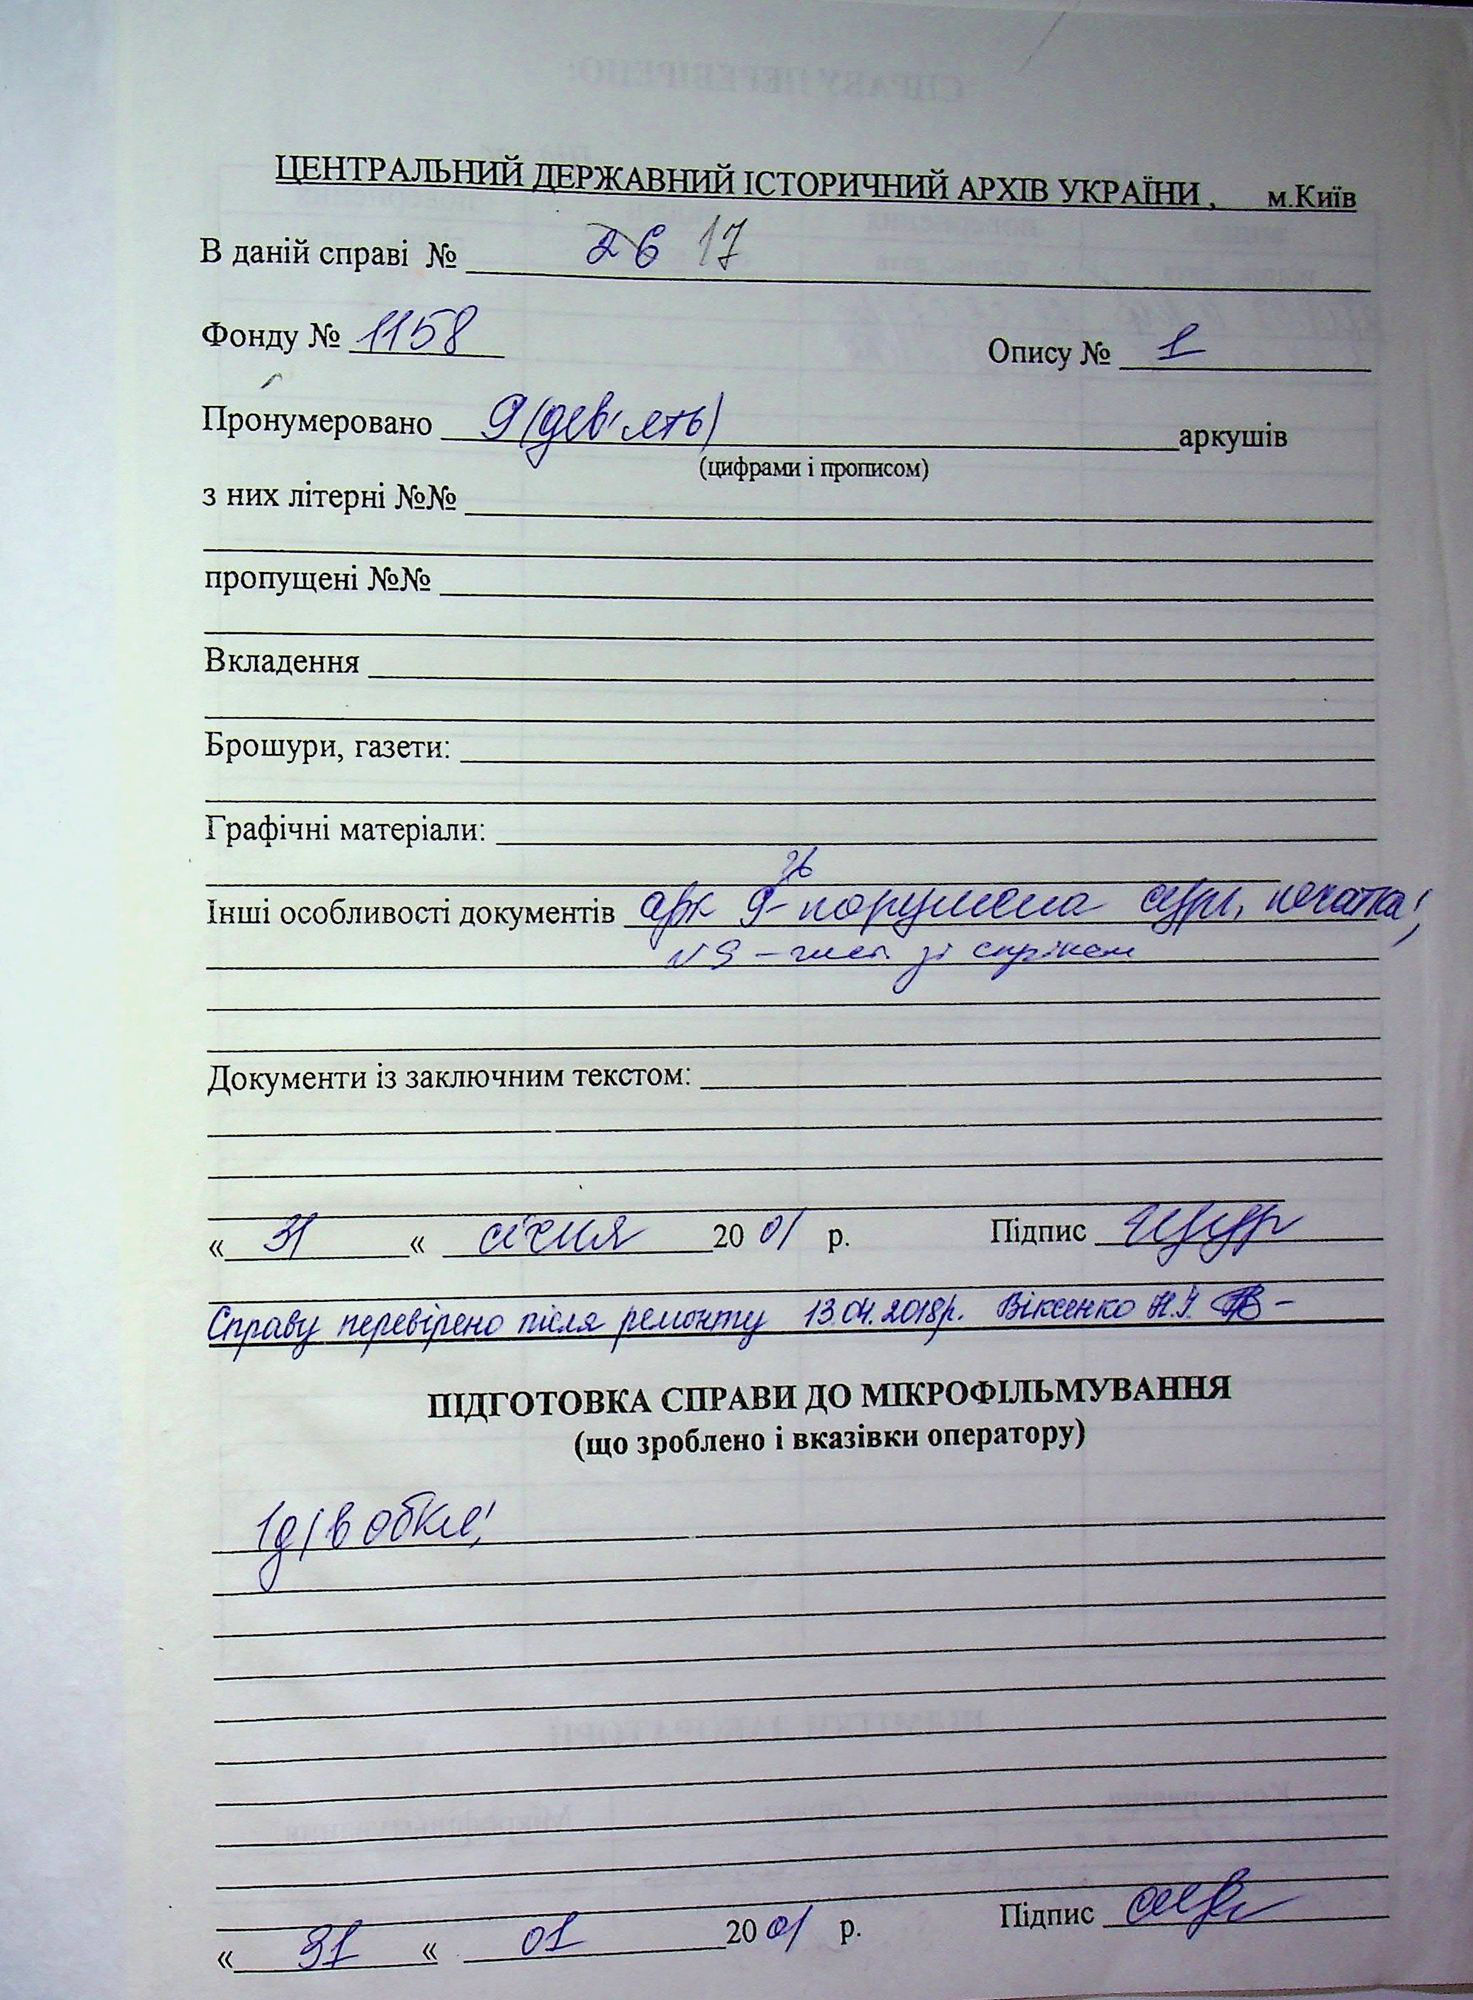 ЦЕНТРАЛЬНИЙ ДЕРЖАВНИЙ ІСТОРИЧНИЙ АРХІВ УКРАЇНИ , м.Київ
В даній справі № 26 17
Фонду № 1158 Опису № 1
Пронумеровано 9 (дев'ять) аркушів
(цифрами і прописом)
з них літерні №№
пропущені №№
Вкладення
Брошури, газети:
Графічні матеріали:
Інші особливості документів арк 9- порушена сург. печатка;
Документи із заключним текстом:
« 31 « січня 20 01 р. Підпис
Справу перевірено після ремонту 13.04.2018р. Віксенко Н.І.
ПІДГОТОВКА СПРАВИ ДО МІКРОФІЛЬМУВАННЯ
(що зроблено і вказівки оператору)
1д/в обкл;
« 31 « 01 20 01 р. Підпис